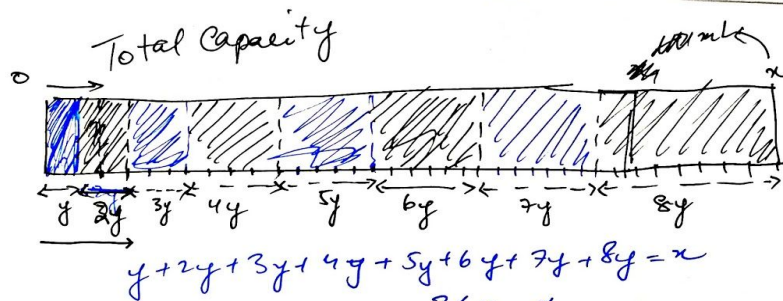 Total Capacity
0 x
y 2y 3y 4y 5y 6y 7y 8y
y+2y+3y+4y+5y+6y+7y+8y=x